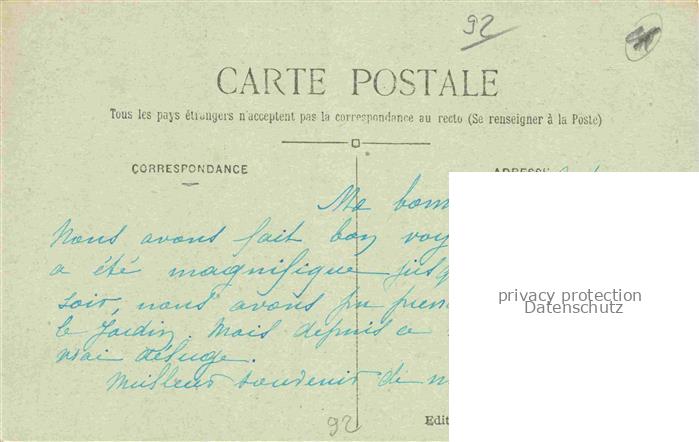 92
CARTE POSTALE
Tous les pays étrangers n'acceptent pas la correspondance au recto (Se renseigner à la Poste)
CORRESPONDANCE
ADRESSE
Ma bonn
Nous avons fait bon voy
a été magnifique jusq
soir, nous avons pu pren
le Jardin. Mais depuis ce
vrai déluge.
Meilleur souvenir de n
92
Edit
privacy protection
Datenschutz